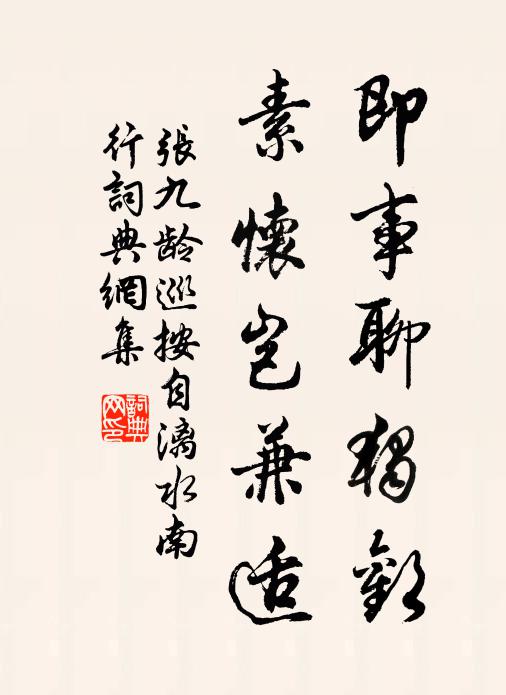 即事聊獨歡
素懷豈兼适
張九龄巡按自漓水南
行詞典網集
詞典
网印